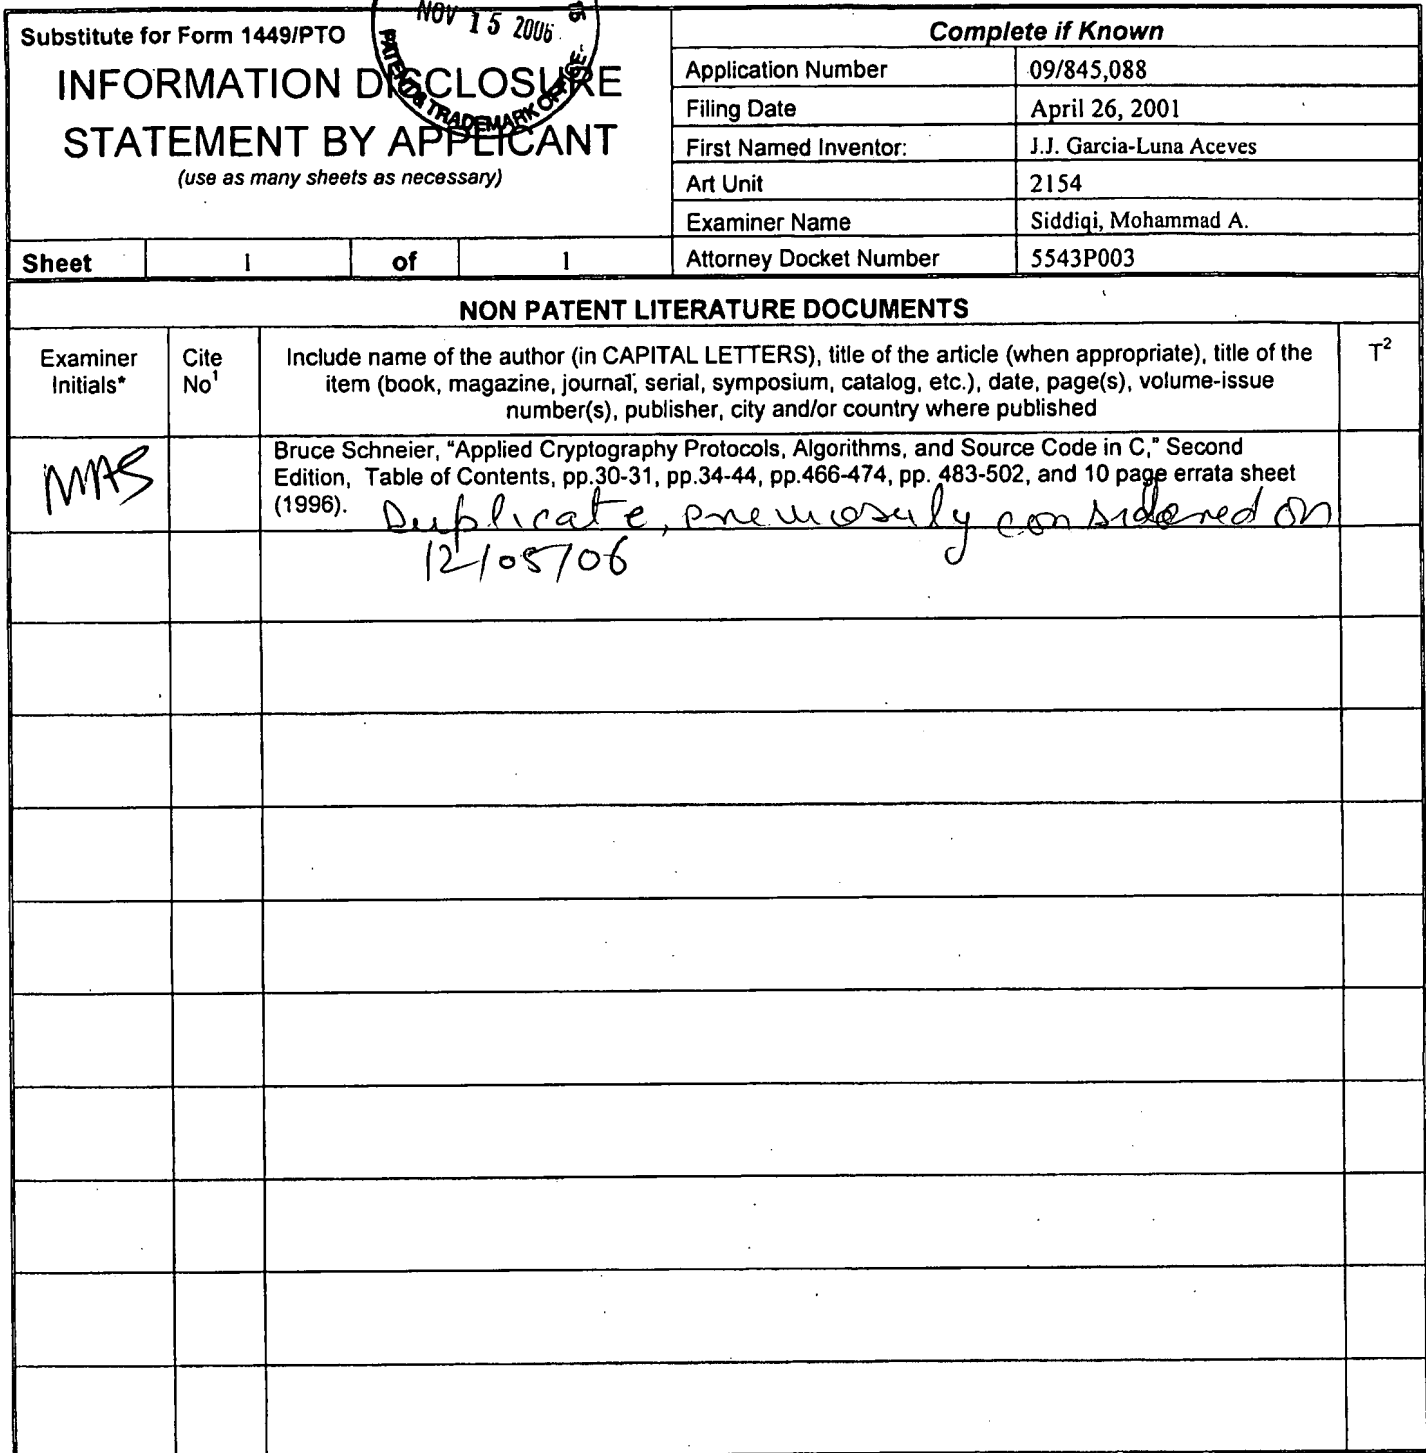 Substitute for Form 1449/PTO
INFORMATION DISCLOSURE
STATEMENT BY APPLICANT
(use as many sheets as necessary)
NOV 15 2006
PATENT & TRADEMARK OFFICE
Sheet 1 of 1
Complete if Known
Application Number 09/845,088
Filing Date April 26, 2001
First Named Inventor: J.J. Garcia-Luna Aceves
Art Unit 2154
Examiner Name Siddiqi, Mohammad A.
Attorney Docket Number 5543P003
NON PATENT LITERATURE DOCUMENTS
Examiner
Initials*
Cite
No¹
Include name of the author (in CAPITAL LETTERS), title of the article (when appropriate), title of the
item (book, magazine, journal, serial, symposium, catalog, etc.), date, page(s), volume-issue
number(s), publisher, city and/or country where published
T²
MAS
Bruce Schneier, "Applied Cryptography Protocols, Algorithms, and Source Code in C," Second
Edition, Table of Contents, pp.30-31, pp.34-44, pp.466-474, pp. 483-502, and 10 page errata sheet
(1996).
Duplicate, previously considered on
12/05/06